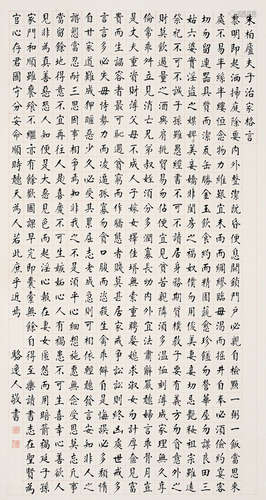 朱柏廬夫子治家格言
黎明即起洒掃庭除要內外整潔既昏便息關鎖門戶必親自檢點一粥一飯當思來
處不易半絲半縷恒念物力維艱宜未雨而綢繆毋臨渴而掘井自奉必須儉約宴客
切勿留連器具質而潔瓦缶勝金玉飲食約而精園蔬愈珍饈勿營華屋勿謀良田三
姑六婆實淫盜之媒婢美妾嬌非閨房之福奴僕勿用俊美妻妾切忌艷妝祖宗雖遠
祭祀不可不誠子孫雖愚經書不可不讀居身務期質樸教子要有義方勿貪意外之
財莫飲過量之酒與肩挑貿易毋佔便宜見貧苦親鄰須加溫恤刻薄成家理無久享
倫常乖舛立見消亡兄弟叔姪須分多潤寡長幼內外宜法肅辭嚴聽婦言乖骨肉豈
是丈夫重貲財薄父母不成人子嫁女擇佳婿毋索重聘娶媳求淑女勿計厚奩見富
貴而生諂容者最可恥遇貧窮而作驕態者賤莫甚居家戒爭訟訟則終凶處世戒多
言言多必失毋恃勢力而凌逼孤寡勿貪口腹而恣殺牲禽乖僻自是悔誤必多頹惰
自甘家道難成狎昵惡少久必受其累屈志老成急則可相依輕聽發言安知非人之
譖愬當忍耐三思因事相爭焉知非我之不是須平心再想施惠勿念受恩莫忘凡事
當留餘地得意不宜再往人有喜慶不可生妒嫉心人有禍患不可生喜幸心善欲人
見不為真善惡恐人知便是大惡見色而起淫心報在妻女匿怨而用暗箭禍延子孫
家門和順雖饔飧不繼亦有餘歡國課早完即囊橐無餘自得至樂讀書志在聖賢為
官心存君國守分安命順時聽天為人若此庶乎近焉 駱達人敬書